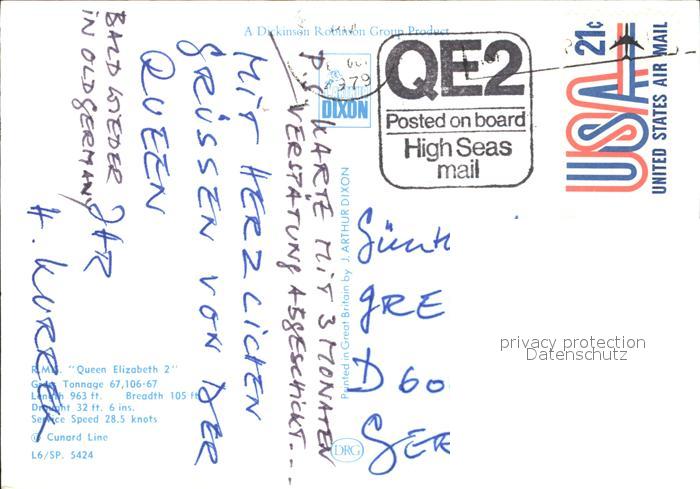 A Dickinson Robinson Group Product
MIT HERZLICHEN
GRÜSSEN VON DER
QUEEN
IHR
H. KURREK
BALD WIEDER
IN OLD GERMANY
P.S. KARTE MIT 3 MONATEN
VERSTÄTUNG ABGESCHICKT...
R.M.S. "Queen Elizabeth 2"
Gross Tonnage 67,106·67
Length 963 ft. Breadth 105 ft
Draught 32 ft. 6 ins.
Service Speed 28.5 knots
© Cunard Line
L6/SP. 5424
DIXON
Printed in Great Britain by J. ARTHUR DIXON
DRG
1979
QE2
Posted on board
High Seas
mail
21c
USA
UNITED STATES AIR MAIL
Günt
GRE
D 60
SER
privacy protection
Datenschutz